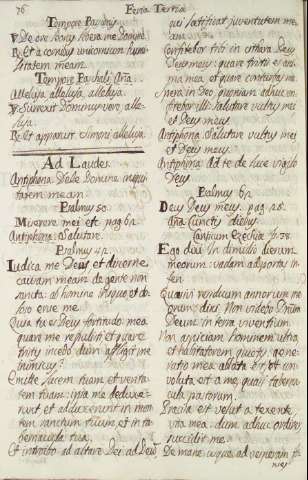 76
Feria Tertia
Tempore Passionis
℣. De ore leonis libera me Domine
℟. Et a cornibus unicornium humi-
litatem meam.
Tempore Paschali Aña
Alleluya alleluya, alleluya.
℣. Surrexit Dominus vere, alle-
luya.
℟. Et apparuit Simoni alleluya.
Ad Laudes
Antiphona Dele Domine iniqui-
tatem meam.
Psalmus 50.
Miserere mei etc pag 62.
Antiphona Salutare
Psalmus 42.
Iudica me Deus et discerne
causam meam de gente non
sancta: ab homine iniquo, et do-
loso erue me.
Quia tu es Deus fortitudo mea
quare me repulisti et quare
tristis incedo dum affligit me
inimicus?
Emitte lucem tuam et verita-
tem tuam: ipsa me deduxe-
runt et adduxerunt in mon-
tem sanctum tuum, et in ta-
bernacula tua.
Et introibo ad altare Dei: ad Deum
qui laetificat juventutem me-
am.
Confitebor tibi in cithara Deus
Deus meus: quare tristis es ani-
ma mea et quare conturbas me
Spera in Deo quoniam adhuc con-
fitebor illi: salutare vultus mei
et Deus meus.
Antiphona Salutare vultus mei
et Deus meus.
Antiphona Ad te de luce vigilo
Deus
Psalmus 62.
Deus Deus meus. pag 25.
Aña Cunctis diebus.
Canticum Ezechiæ 38
Ego dixi in dimidio dierum
meorum: vadam ad portas in-
feri.
Quæsivi residuum annorum me-
orum: dixi, Non videbo Dominum
Deum in terra viventium.
Non aspiciam hominem ultra,
et habitatorem quietis: gene-
ratio mea ablata est, et con-
voluta est a me, quasi taberna-
cula pastorum.
Præcisa est velut a texente,
vita mea: dum adhuc ordirer,
succidit me:
De mane usque ad vesperam fi-
nies